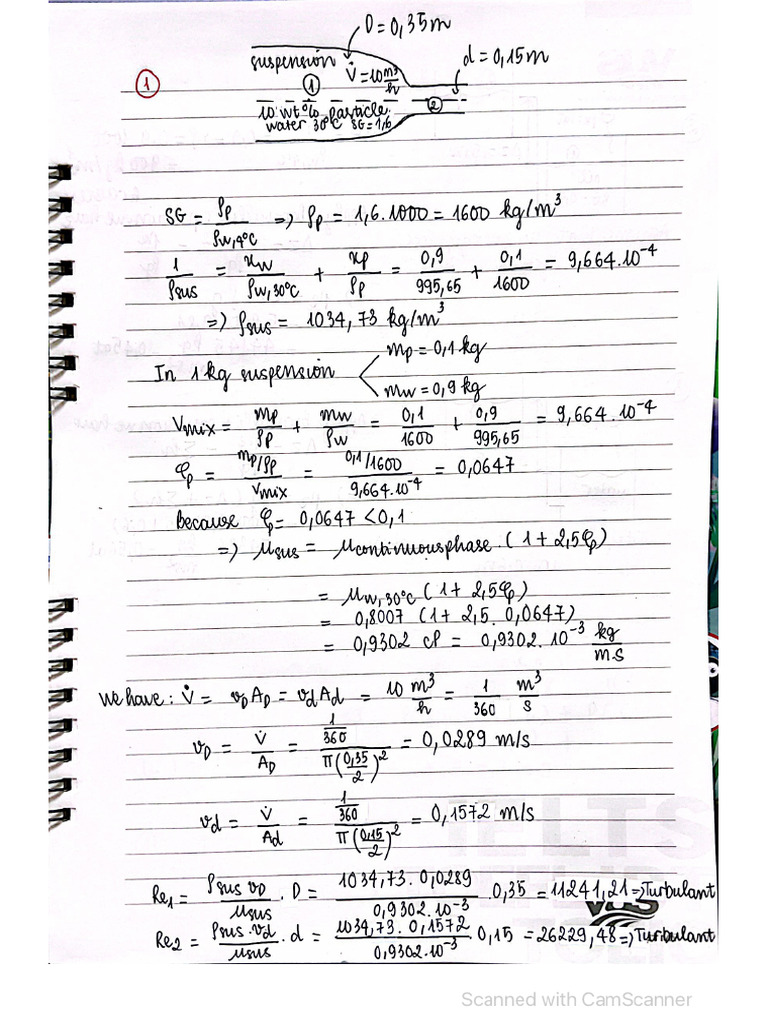 D = 0,35m
suspension
V̇ = 10 m³/h
d = 0,15m
①
①
②
10 wt% particle
water 30°C SG = 1,6
SG = ρp / ρw,4°C => ρp = 1,6 . 1000 = 1600 kg/m³
1/ρsus = xw/ρw,30°C + xp/ρp = 0,9/995,65 + 0,1/1600 = 9,664.10⁻⁴
=> ρsus = 1034,73 kg/m³
In 1 kg suspension < mp = 0,1 kg
mw = 0,9 kg
Vmix = mp/ρp + mw/ρw = 0,1/1600 + 0,9/995,65 = 9,664.10⁻⁴
φp = (mp/ρp)/Vmix = (0,1/1600)/(9,664.10⁻⁴) = 0,0647
Because φp = 0,0647 < 0,1
=> μsus = μcontinuousphase . (1 + 2,5φp)
= μw,30°C (1 + 2,5φp)
= 0,8007 (1 + 2,5 . 0,0647)
= 0,9302 cP = 0,9302.10⁻³ kg/m.s
We have: V̇ = vDAD = vdAd = 10 m³/h = 1/360 m³/s
vD = V̇/AD = (1/360)/(π(0,35/2)²) = 0,0289 m/s
vd = V̇/Ad = (1/360)/(π(0,15/2)²) = 0,1572 m/s
Re1 = (ρsus vD/μsus) . D = (1034,73 . 0,0289/0,9302.10⁻³) . 0,35 = 11241,21 => Turbulant
Re2 = (ρsus . vd/μsus) . d = (1034,73 . 0,1572/0,9302.10⁻³) . 0,15 = 26229,48 => Turbulant
Scanned with CamScanner